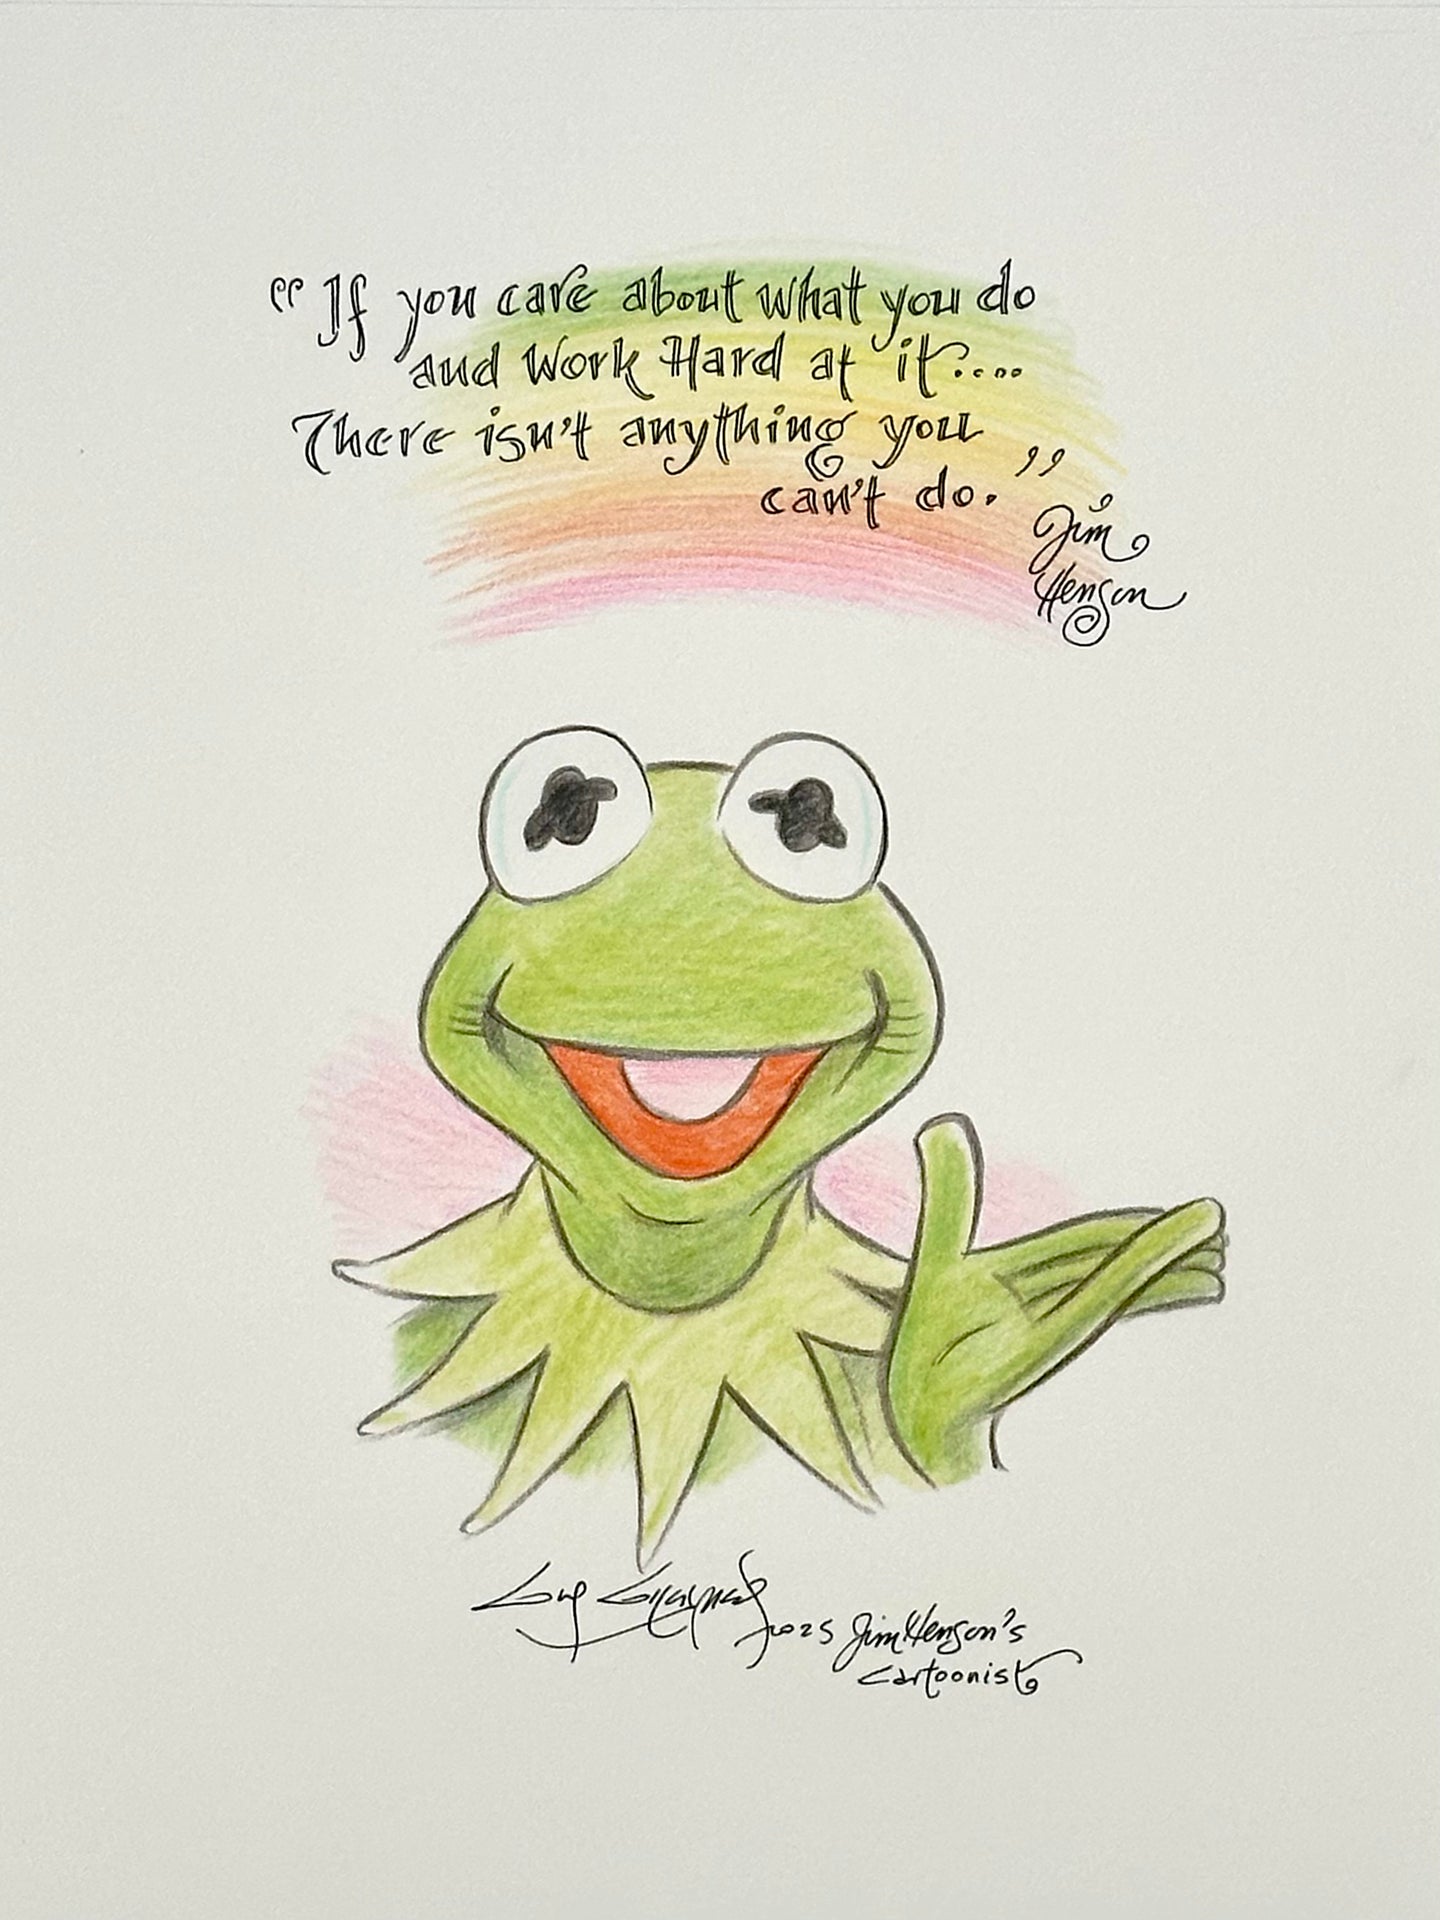 “If you care about what you do
and Work Hard at it....
There isn't anything you
can't do.”
Jim
Henson
Guy Gilchrist 2025 Jim Henson's
Cartoonist